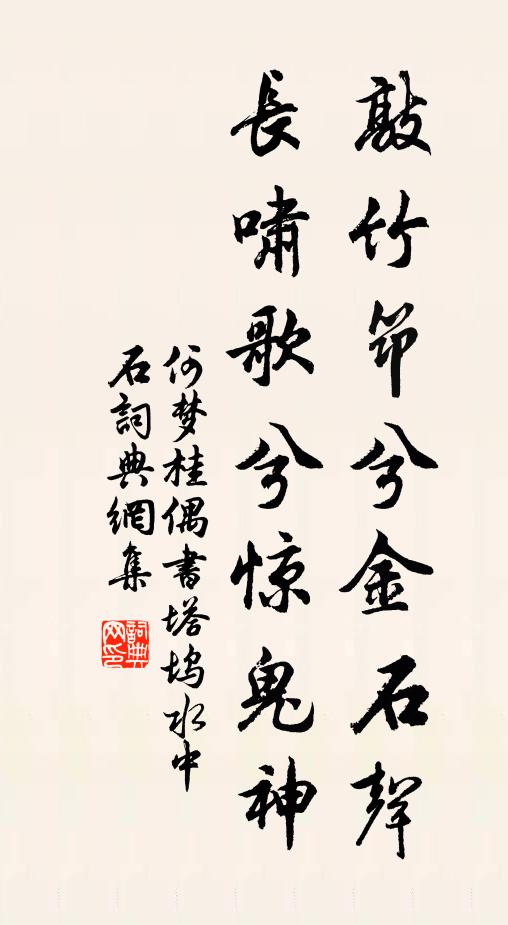 敲竹筇兮金石聲
長嘯歌兮惊鬼神
何梦桂偶書塔坞水中
石詞典網集
詞典
网印